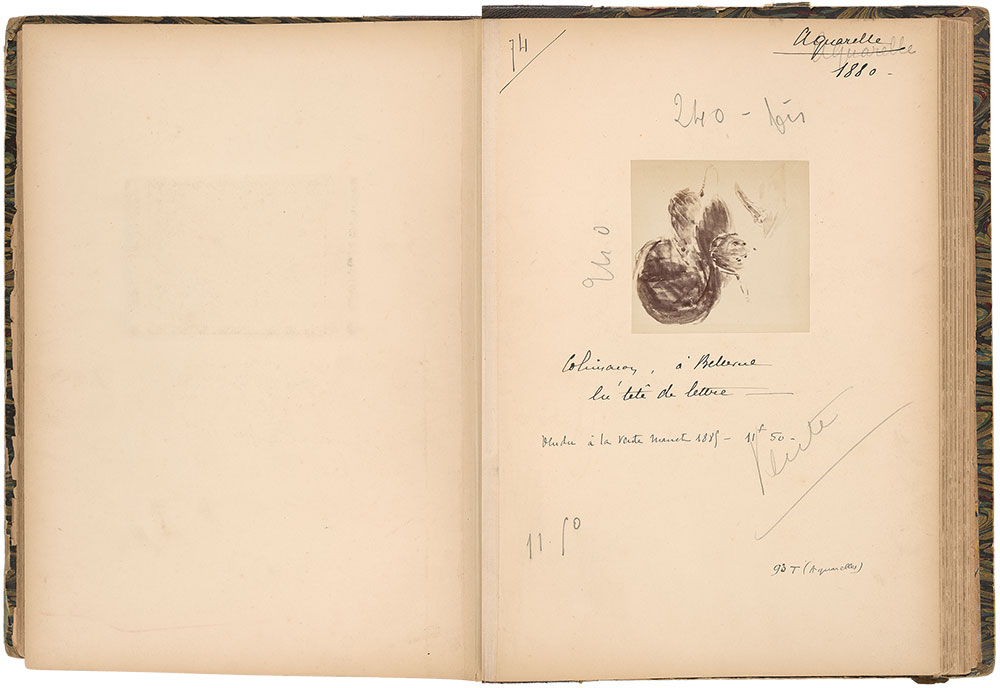 74
Aquarelle
Aquarelle
1880 -
240 - bis
240
Colimaçon, à Bellevue
tête de lettre
Vendu à la vente Manet 1884 - 11f 50 -
Vente
11.50
93 T (Aquarelles)